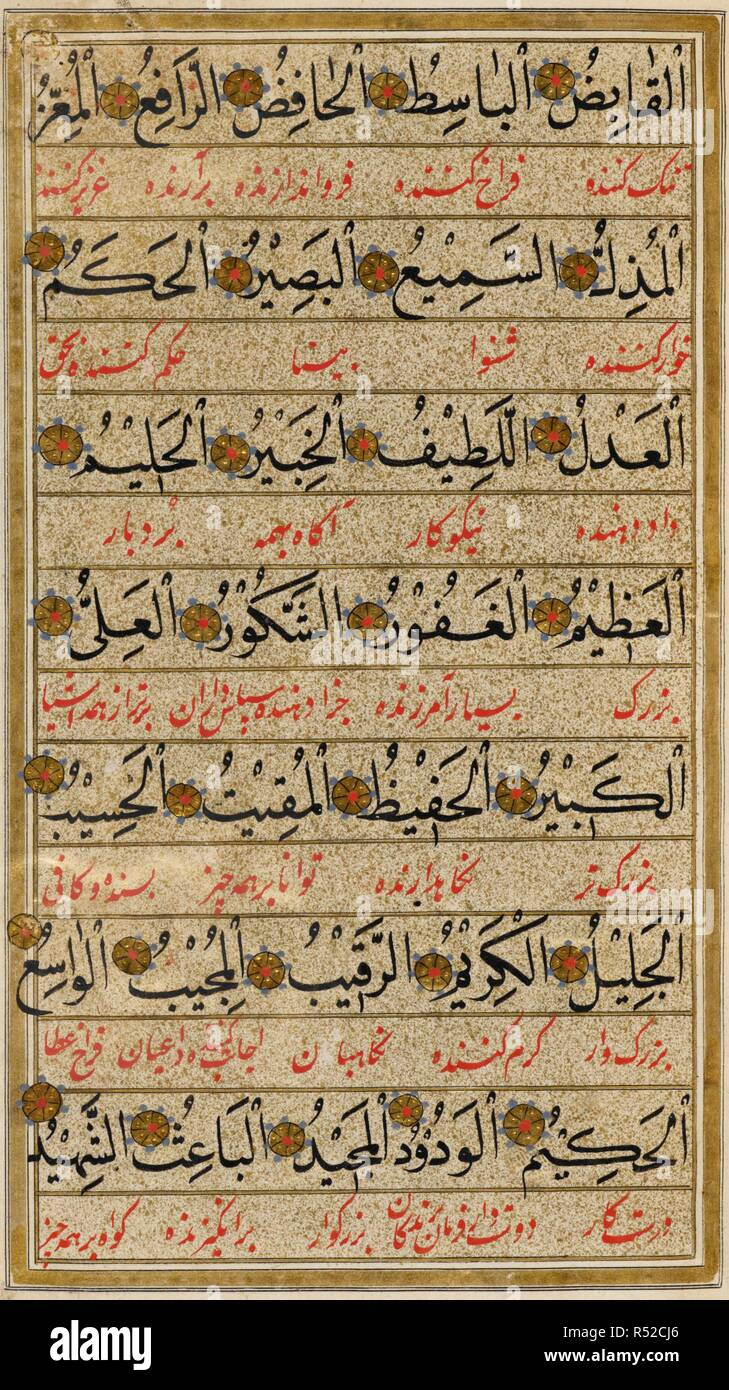 اَلْقَابِضُ اَلْبَاسِطُ اَلْخَافِضُ اَلرَّافِعُ اَلْمُعِزُّ
تنگ کننده فراخ کننده فرو اندازنده برآرنده عزیز کننده
اَلْمُذِلُّ اَلسَّمِيْعُ اَلْبَصِيْرُ اَلْحَكَمُ
خوار کننده شنوا بینا حکم کننده بحق
اَلْعَدْلُ اَللَّطِيْفُ اَلْخَبِيْرُ اَلْحَلِيْمُ
داد دهنده نیکوکار آگاه بهمه بردبار
اَلْعَظِيْمُ اَلْغَفُوْرُ اَلشَّكُوْرُ اَلْعَلِيُّ
بزرگ بسیار آمرزنده جزا دهنده سپاس داران برتر از همه اشیا
اَلْكَبِيْرُ اَلْحَفِيْظُ اَلْمُقِيْتُ اَلْحَسِيْبُ
بزرگ تر نگاهدارنده توانا بر همه چیز بسنده و کافی
اَلْجَلِيْلُ اَلْكَرِيْمُ اَلرَّقِيْبُ اَلْمُجِيْبُ اَلْوَاسِعُ
بزرگ وار کرم کننده نگاهبان اجابت کننده داعیان فراخ عطا
اَلْحَكِيْمُ اَلْوَدُوْدُ اَلْمَجِيْدُ اَلْبَاعِثُ اَلشَّهِيْدُ
درست کار دوست دار فرمان بزرگوار برانگیزنده گواه بر همه چیز
alamy
Image ID: R52CJ6
www.alamy.com